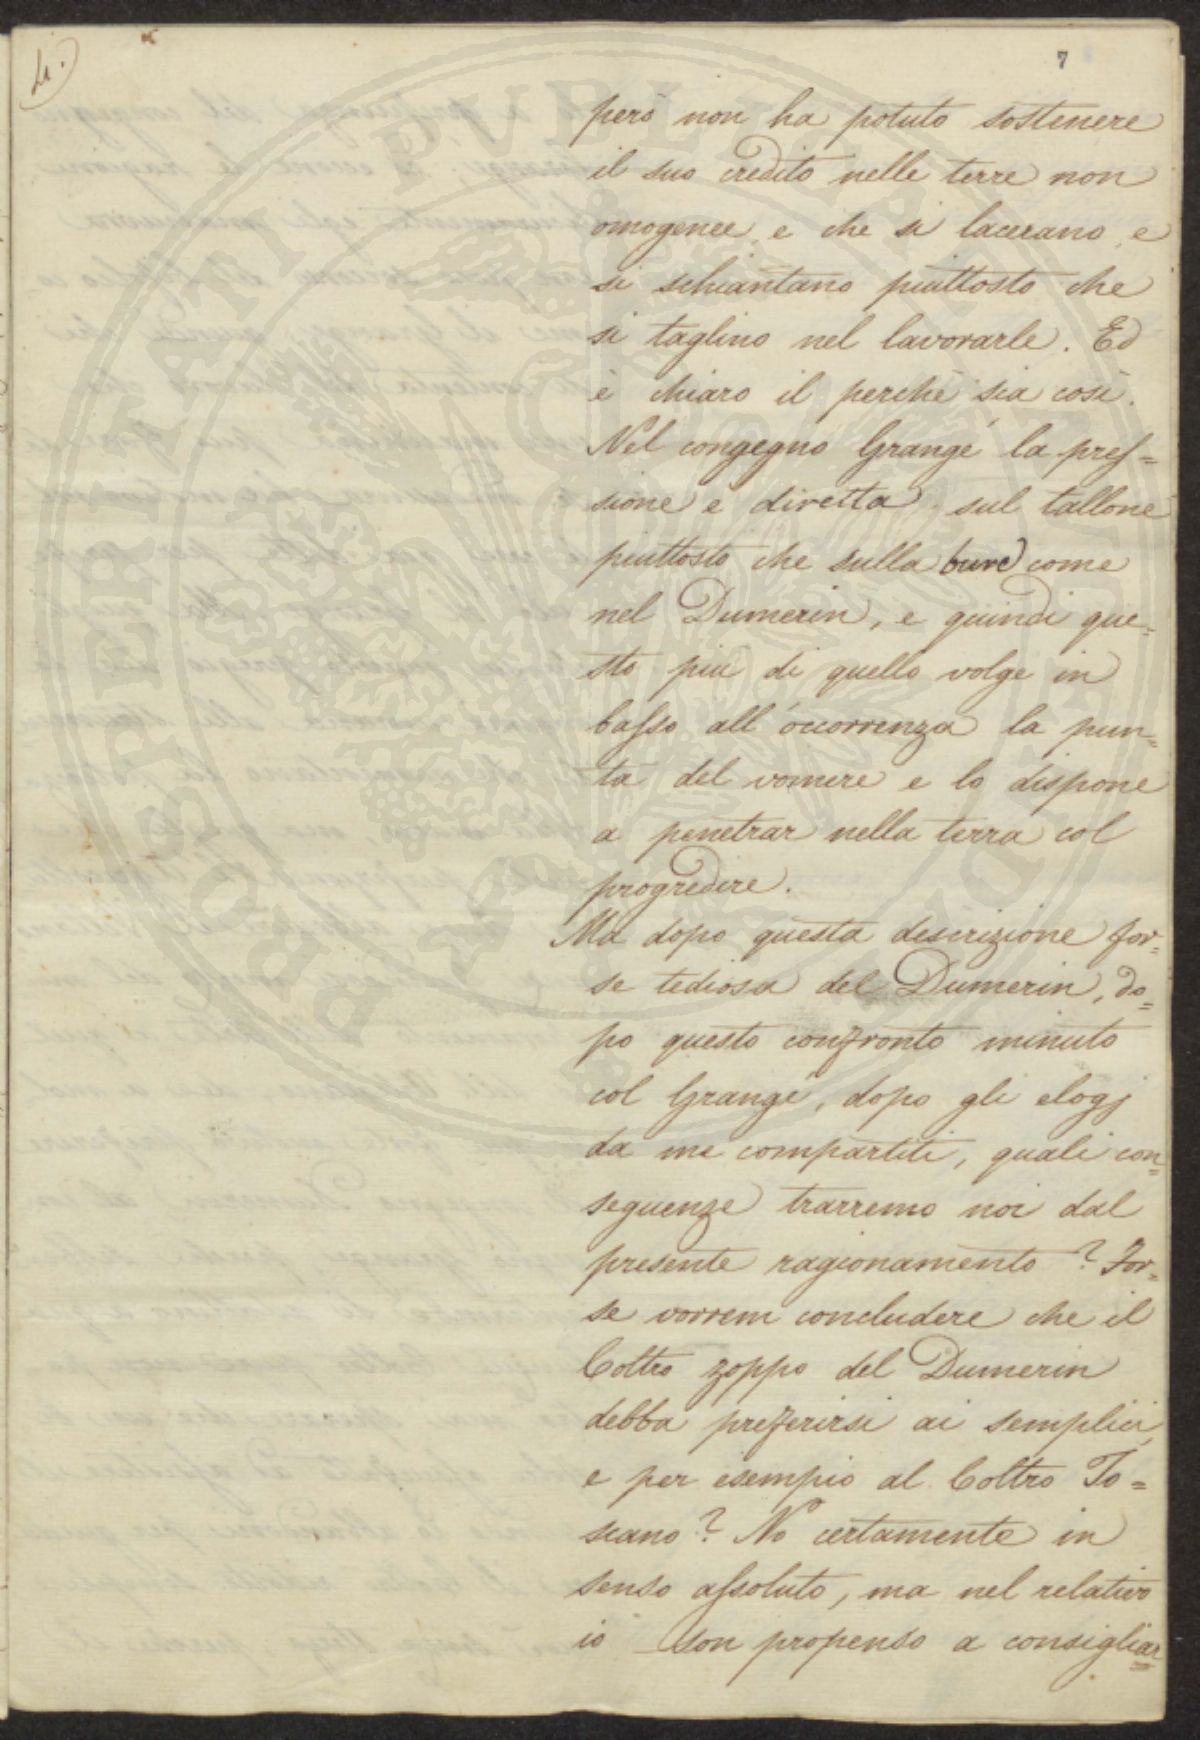 4.)
7
però non ha potuto sostenere
il suo credito nelle terre non
omogenee, e che si lacerano, e
si schiantano piuttosto che
si taglino nel lavorarle. Ed
è chiaro il perchè sia così.
Nel congegno Grangé la pres=
sione è diretta sul tallone
piuttosto che sulla bure come
nel Dumerin, e quindi que=
sto più di quello volge in
basso all'occorrenza la pun=
ta del vomere e lo dispone
a penetrar nella terra col
progredire.
Ma dopo questa descrizione for=
se tediosa del Dumerin, do=
po questo confronto minuto
col Grangé, dopo gli elogj
da me compartiti, quali con=
seguenze trarremo noi dal
presente ragionamento? For=
se vorrem concludere che il
Coltro zoppo del Dumerin
debba preferirsi ai semplici,
e per esempio al Coltro To=
scano? No certamente in
senso assoluto, ma nel relativo
io son propenso a consigliar
PROSPERITATI PUBLICAE